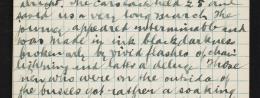 alright. The cars each held 25 and
saved us a very long march. The
journey appeared interminable and
was made in ink black darkness
broken only by vivid flashes of chain
lightning and later a deluge. Those
men who were on the outside of
the busses got rather a soaking